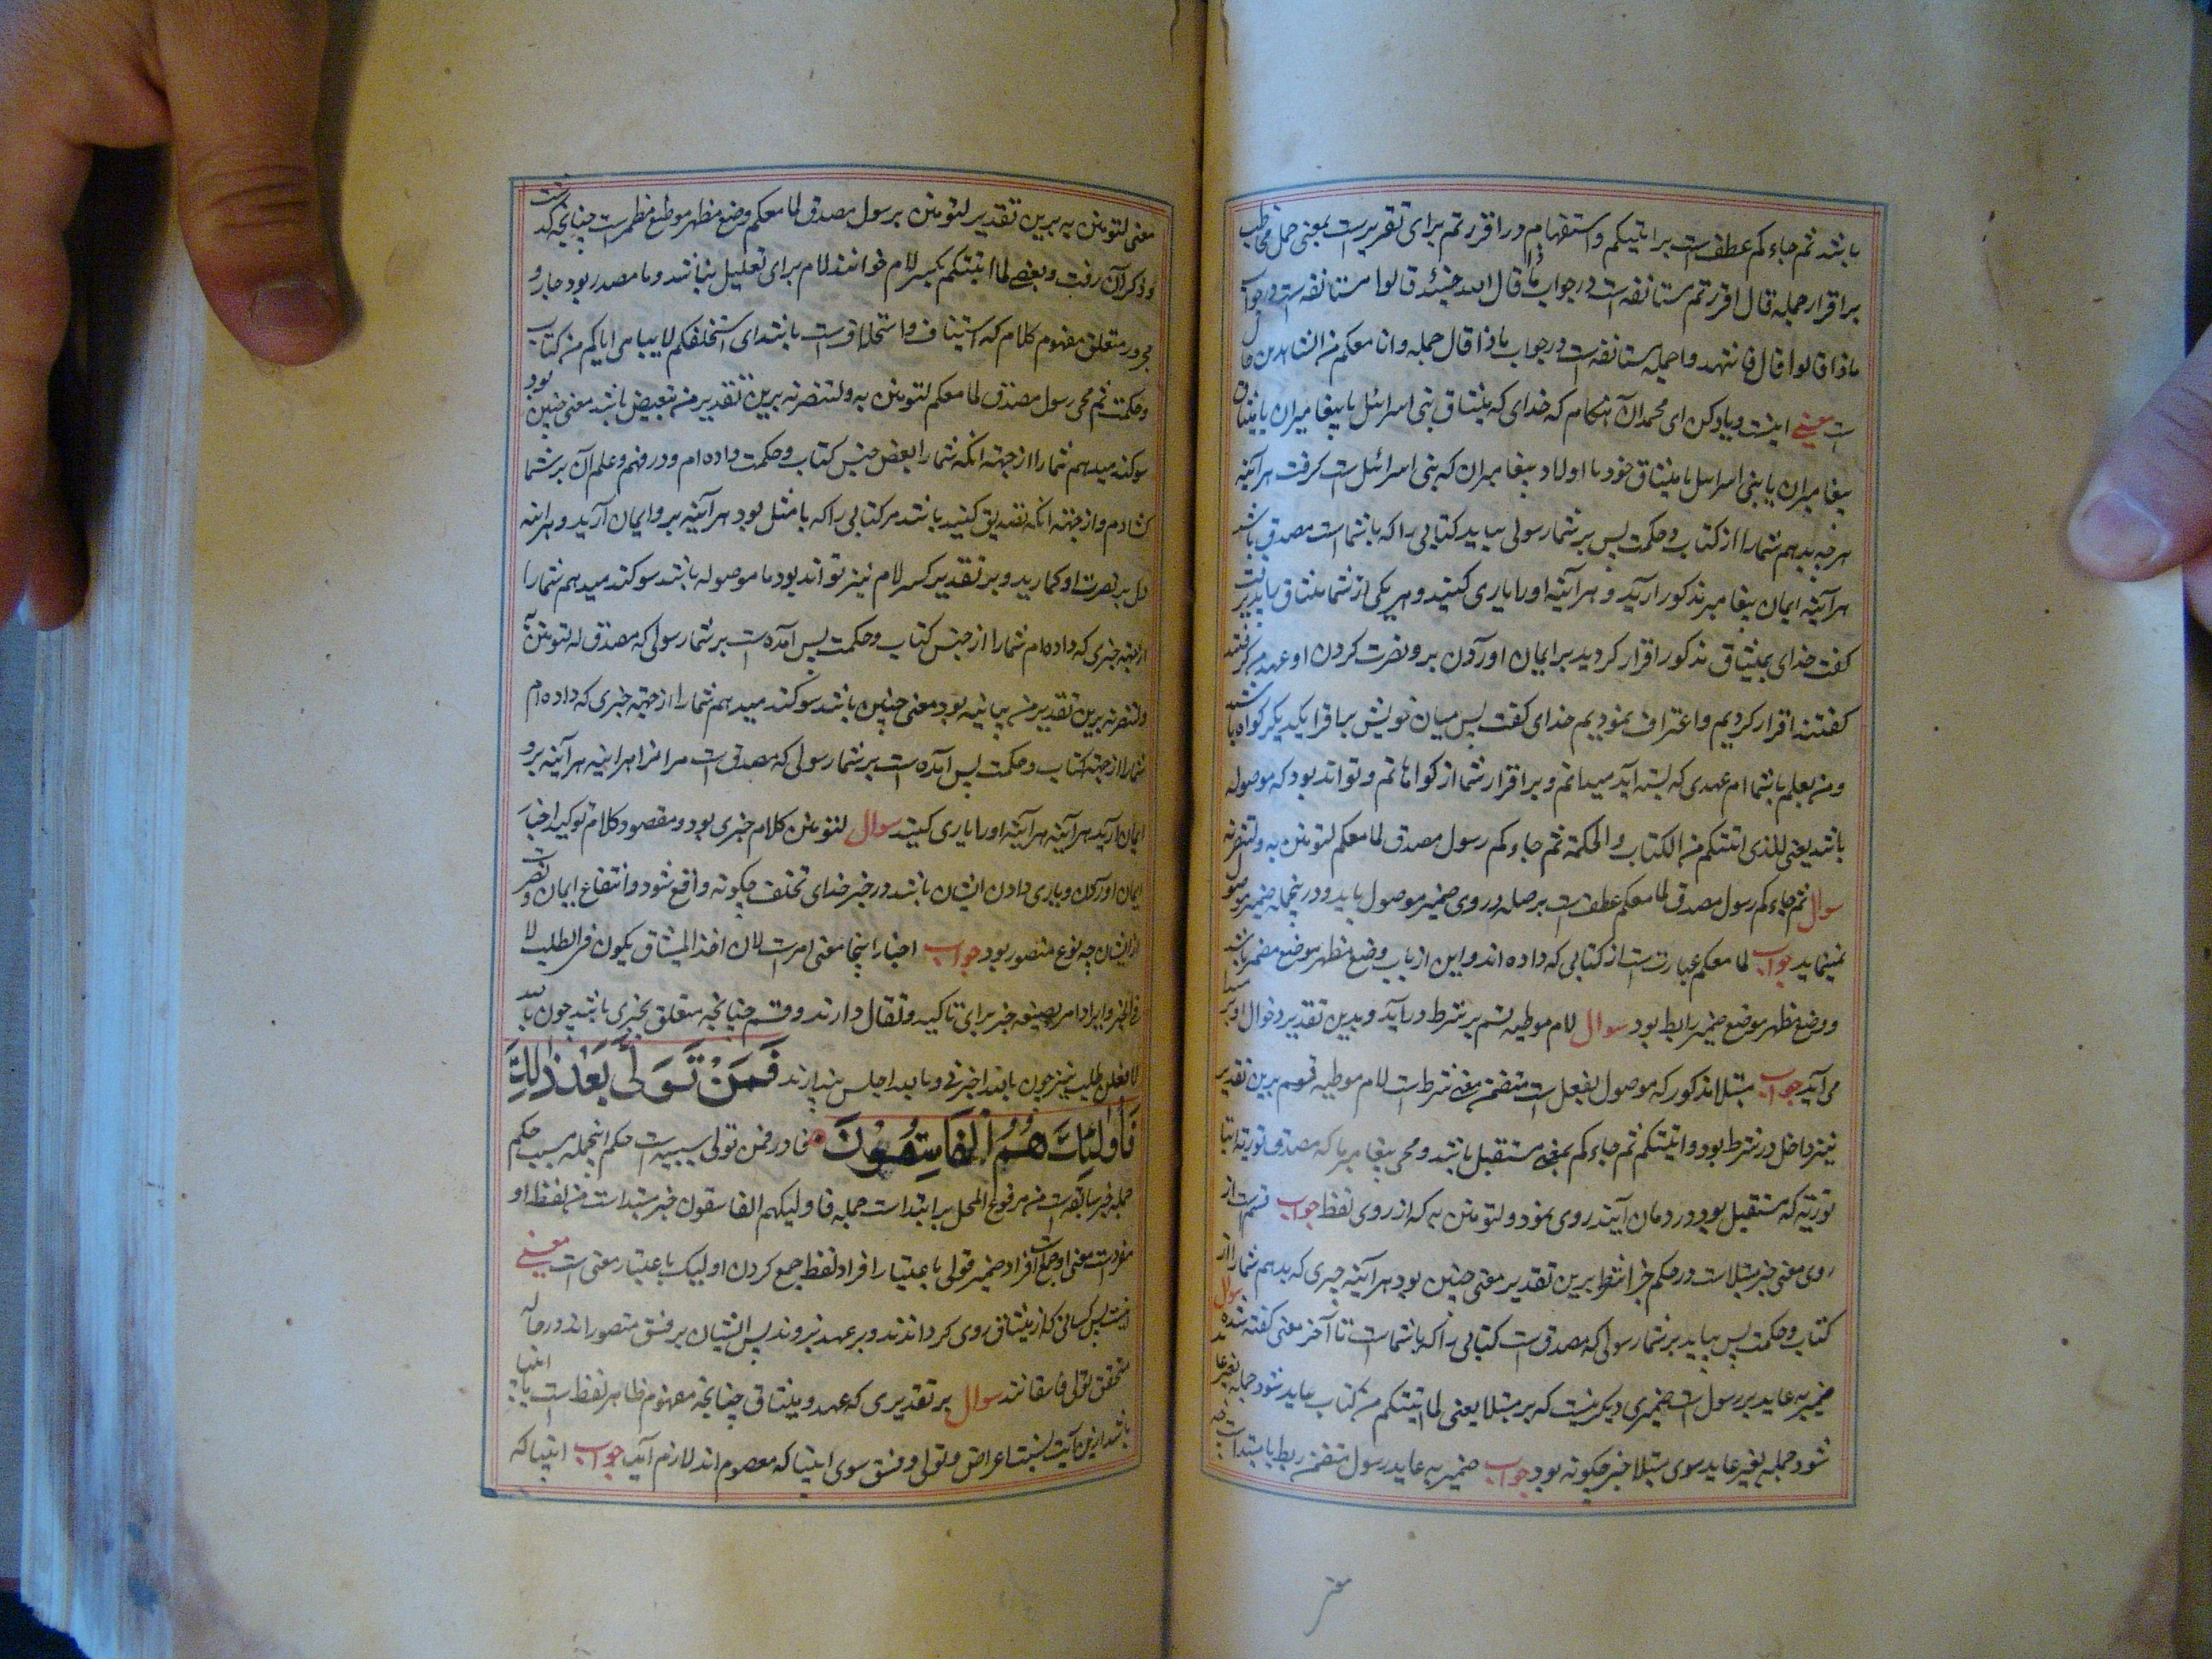 باشد ثم جاءکم عطف است بر اتیتکم و استفهام در اقررتم برای تقریر است بمعنی حمل مخاطب
بر اقرار جمله قال اقررتم مستانفه است در جواب ماذا قال الله حینئذ قالوا مستانفه است در جواب
ماذا قالوا قال فاشهدوا جمله مستانفه است در جواب ماذا قال جمله و انا معکم من الشاهدین
است معنی اینست و یاد کن ای محمد آن هنگام که خدای که میثاق بنی اسرائیل با پیغامبران یا میثاق
پیغامبران یا بنی اسرائیل یا میثاق خود با اولاد پیغامبران که بنی اسرائیل است گرفت هرآینه
هرچه بدهم شما را از کتاب و حکمت پس بر شما رسولی بیاید کتابی را که با شما است مصدق باشد
هرآینه ایمان پیغامبر مذکور آرید و هرآینه او را یاری کنید و هریکی از شما میثاق باید
گفت خدای بمیثاق مذکور اقرار کردید بر ایمان اوردن برو و نصرت کردن او عهد گرفتند
گفتند اقرار کردیم و اعتراف نمودیم خدای گفت پس میان خویش بر اقرار یکدیگر گواه باشید
و من بعلم با شماام عهدی که بسته آید میدانم و بر اقرار شما از گواهانم و تواند بود که موصوله
باشد یعنی للذی اتیتکم من الکتاب والحکمة ثم جاءکم رسول مصدق لما معکم لتومنن به ولتنصرنه
سوال ثم جاءکم رسول مصدق لما معکم عطف است بر صله در وی ضمیر موصول باید و درینجمله ضمیر موصول
نمینماید جواب لما معکم عبارتست از کتابی که داده اند و این از باب وضع مظهر موضع مضمر باشد
و وضع مظهر موضع ضمیر رابط بود سوال لام موطیه قسم بر شرط درآید و بدین تقدیر دخول او بر
می آید جواب مبتدا مذکور که موصول بفعل است متضمن معنی شرط است لام موطیه قسم برین تقدیر
نیز داخل در شرط بود و اتیتکم ثم جاءکم بمعنی مستقبل باشد و مجی پیغامبر ما که مصدق توریة
توریة که مستقبل بود و در زمان آینده روی نمود و لتومنن به که از روی لفظ جواب قسم است از
روی معنی خبر مبتدا است در حکم جزا شرط برین تقدیر معنی چنین بود هرآینه چیزی که بدهم شما را از
کتاب و حکمت پس بیاید بر شما رسولی که مصدق است کتابی را که با شما است تا آخر معنی گفته شده سوال
ضمیر به عاید بر رسول است ضمیری دیگر نیست که بر مبتدا یعنی لما اتیتکم من کتاب عاید شود جمله بغیر عا
شود جمله بغیر عاید سوی مبتدا خبر چگونه بود جواب ضمیر به عاید رسول متضمن ربط با مبتدا است
معنی لتومنن به برین تقدیر لتومنن برسول مصدق لما معکم وضع مظهر موضع مظمر است چنانچه گذشت
و ذکر آن رفت و بعضی لما اتیتکم بکسر لام خوانند لام برای تعلیل بباشد و ما مصدر بود جار و
مجرور متعلق مفهوم کلام که استیناف و استحلاف است باشد ای استحلفکم لایتاءی ایاکم من کتاب
و حکمت ثم مجی رسول مصدق لما معکم لتومنن به ولتنصرنه برین تقدیر من تبعیض باشد معنی چنین بود
سوکند میدهم شما را از جهة انکه شما را بعض جنس کتاب و حکمت داده ام و در فهم و علم آن بر شما
کشادم و از جهة انکه تصدیق کنید باشد مر کتابی را که با مثل بود هرآینه برو ایمان آرید و هراینه
دل بر نصرت او کمارید و بر تقدیر کسر لام نیز تواند بود ما موصوله باشد سوکند میدهم شما را
از جهة چیزی که داده ام شما را از جنس کتاب و حکمت پس آمده است بر شما رسولی که مصدق له لتومنن به
ولتنصرنه برین تقدیر من بیانیه بود معنی چنین باشد سوکند میدهم شما را از جهة چیزی که داده ام
شما را از جهة کتاب و حکمت پس آمده است بر شما رسولی که مصدق است مر انرا هراینه هرآینه برو
ایمان آرید هرآینه هرآینه او را یاری کنید سوال لتومنن کلام خبری بود و مقصود کلام توکید اخبار
ایمان آوردن و یاری دادن ایشان باشد در خبر خدای تخلف چگونه واقع شود و انتفاع ایمان و نصرت
از ایشان چه نوع متصور بود جواب اخبار اینجا معنی امر است لان اخذ المیثاق یکون فی الطلب لا
فی الخبر و ایراد امر بصیغه خبر برای تاکید و تفال دارند و قسم چنانچه متعلق بخبری باشد چون بالله
لافعلن بطلب نیز چون بالله اخبرنی و بالله اجلس بپارند فَمَنْ تَوَلَّىٰ بَعْدَ ذٰلِكَ
فَأُولٰئِكَ هُمُ الْفَاسِقُونَ فا در فمن تولی سببیه است حکم اینجمله مسبب حکم
جمله خبر سابقه است من مرفوع المحل بر ابتدا است جمله فاولیک هم الفاسقون خبر مبتدا است من بلفظ او
مفرد است معنی او جمع است افراد ضمیر تولی باعتبار افراد لفظ جمع کردن اولیک باعتبار معنی است معنی
اینست پس کسانی که از میثاق روی کرداندند و بر عهد نروند پس ایشان بر فسق متصوراند و در حاله
تحقق تولی فاسقانند سوال بر تقدیری که عهد و میثاق چنانچه مفهوم ظاهر لفظ است با انبیا
باشد ازین آیت نسبت اعراض و تولی و فسق سوی انبیا که معصوم اند لازم آید جواب انبیا که